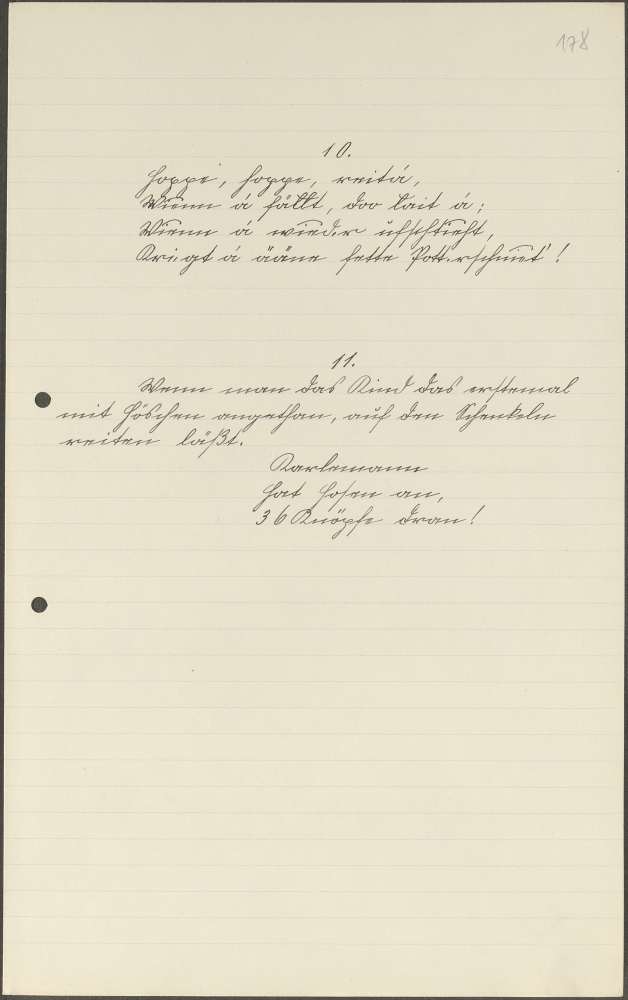 178
10.
Hoppe, hoppe, reitá,
Wienn á fällt, doo lait á;
Wienn á wieder ufschtieht,
Kriegt á ääne fette Pott.rschniet!
11.
Wenn man das Kind das erstemal
mit Höschen angethan, auf den Schenkeln
reiten läßt.
Karlemann
hat Hosen an,
36 Knöpfe dran!